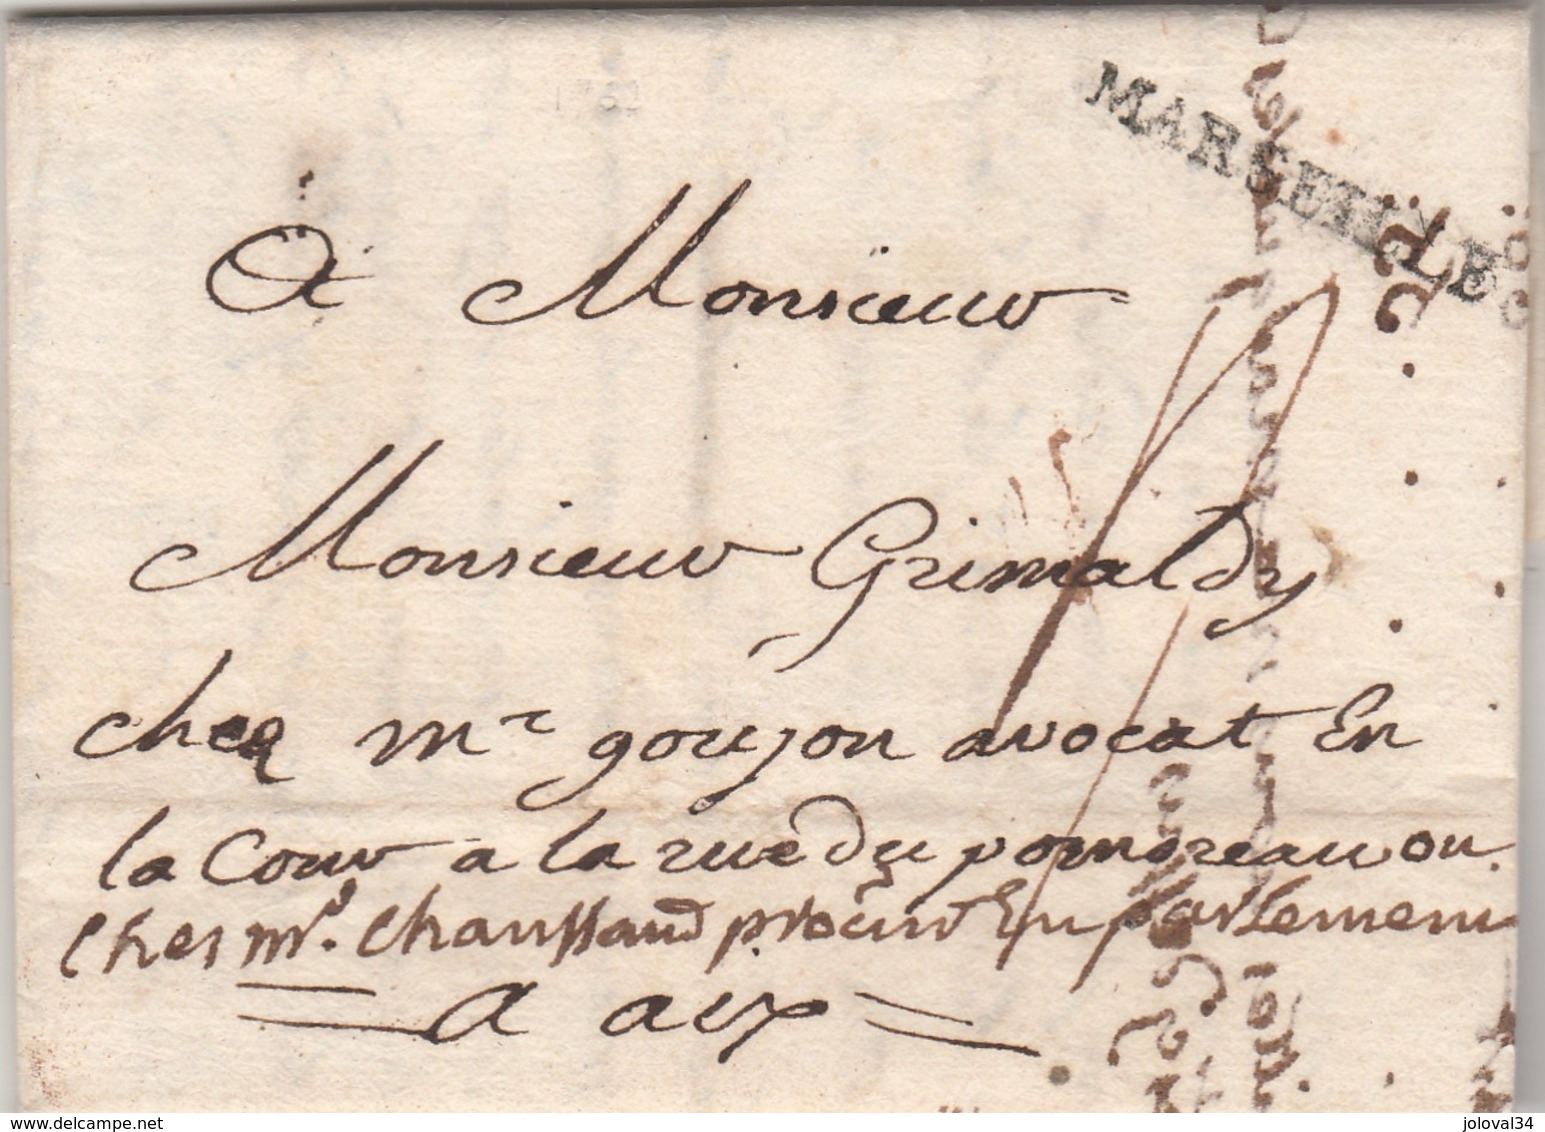 MARSEILLE
A Monsieur
Monsieur Grimaldy
chez mr goujon avocat En
la Cour a la rue du pomoreau ou
Ches mr. Chaussaud procur En parlement
A aix
www.delcampe.net
joloval34